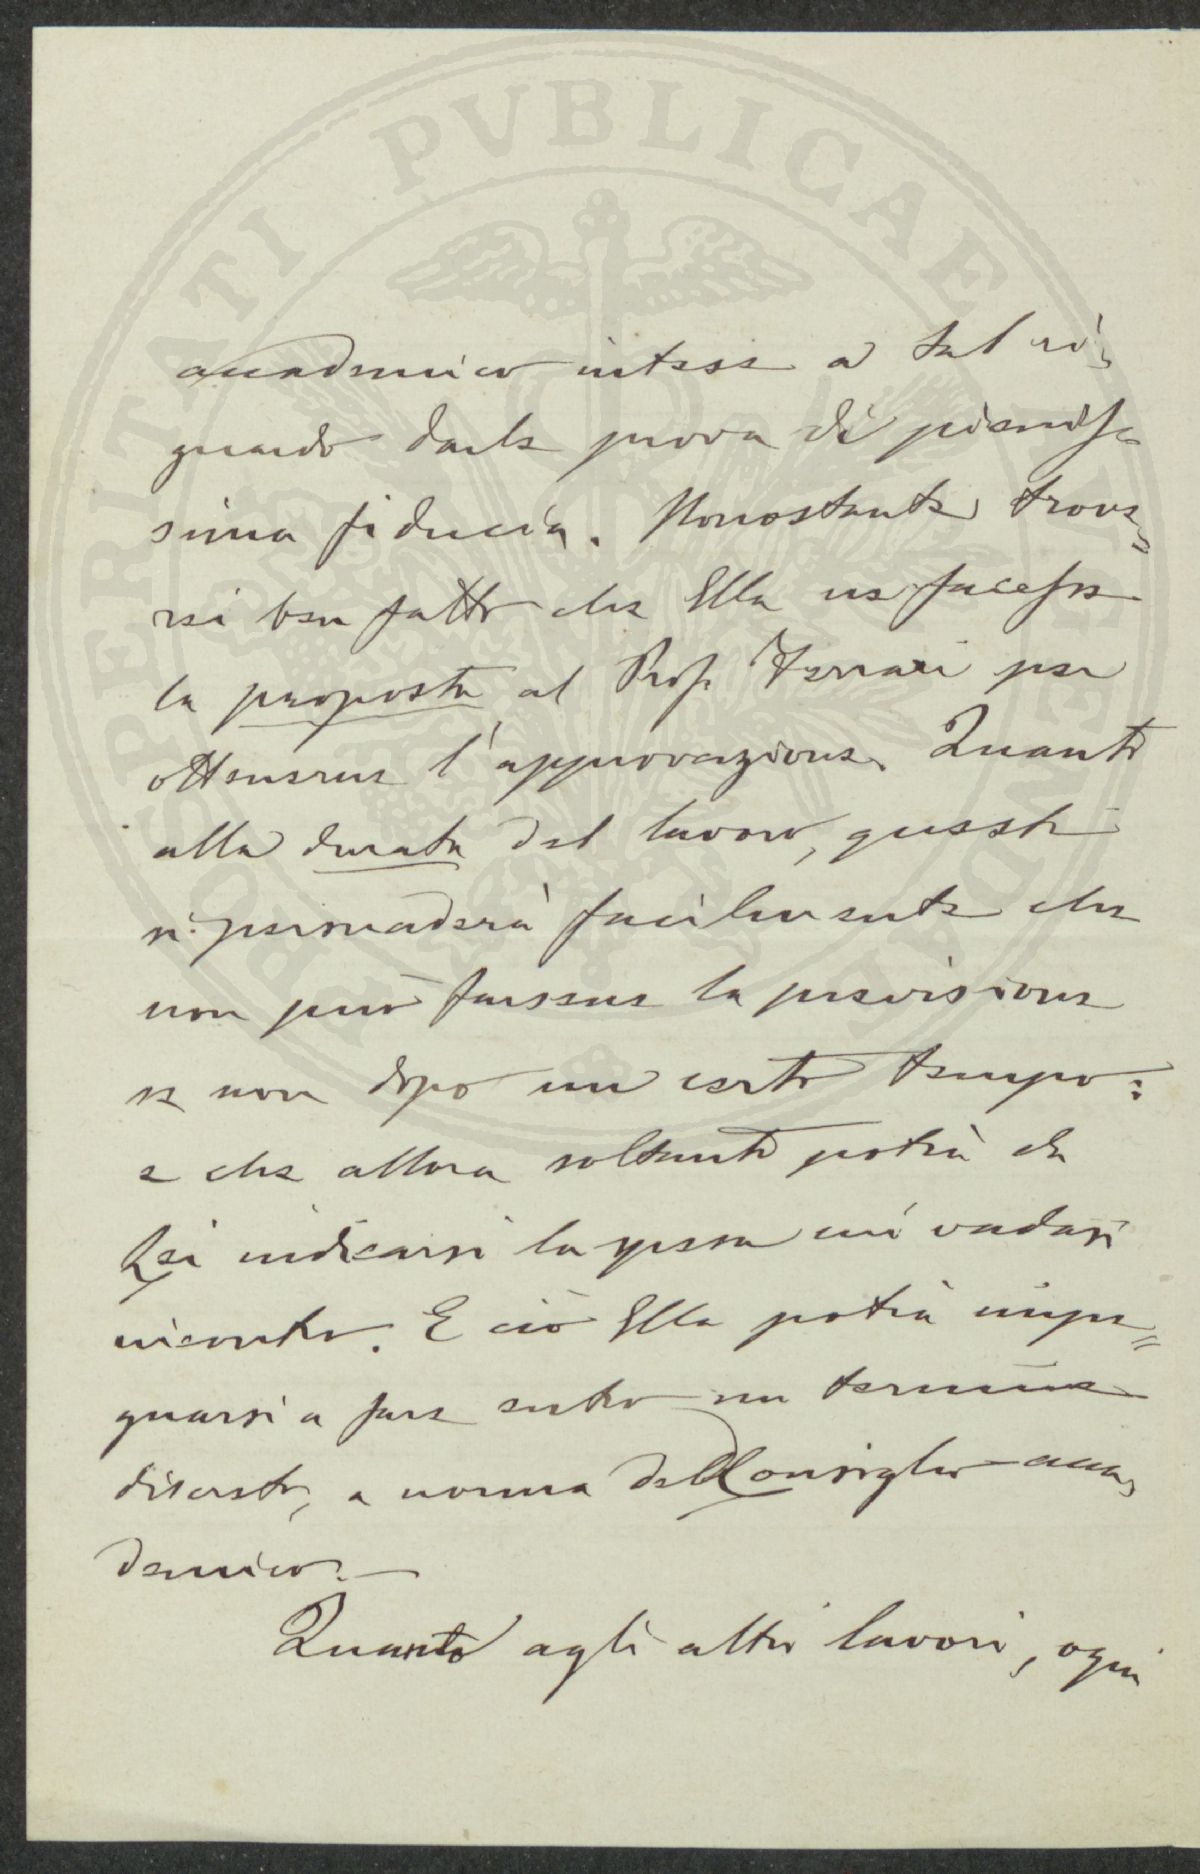 PROSPERITATI PVBLICAE AVGENDAE
accademico intese a tal ri-
guardo darle prova di pienis-
sima fiducia. Nonostante trove=
rei ben fatto che Ella ne facesse
la proposta al Prof. Ferrari per
ottenerne l'approvazione. Quanto
alla durata del lavoro, questi
si persuaderà facilmente che
non può farsene la previsione
se non dopo un certo tempo:
e che allora soltanto potrà da
Lei indicarsi la spesa cui vadasi
incontro. E ciò Ella potrà impe=
gnarsi a fare entro un termine
discreto, a norma del Consiglio acca-
demico. —
Quanto agli altri lavori, ogni